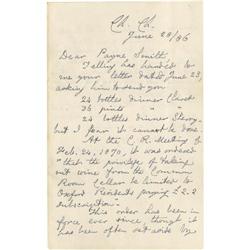 Ch. Ch.
June 28/86
Dear Payne Smith
Telling has handed to
me your letter dated June 23,
asking him to send you
24 bottles dinner Claret
36 pints " "
24 bottles dinner Sherry
but I fear it cannot be done.
At the C. R. Meeting of
Feb. 24, 1870, it was ordered
"that the privilege of taking
out wine from the Common
Room Cellar be limited to
Oxford Residents paying £2.2
subscription".
This order has been in
force ever since though it
has been often